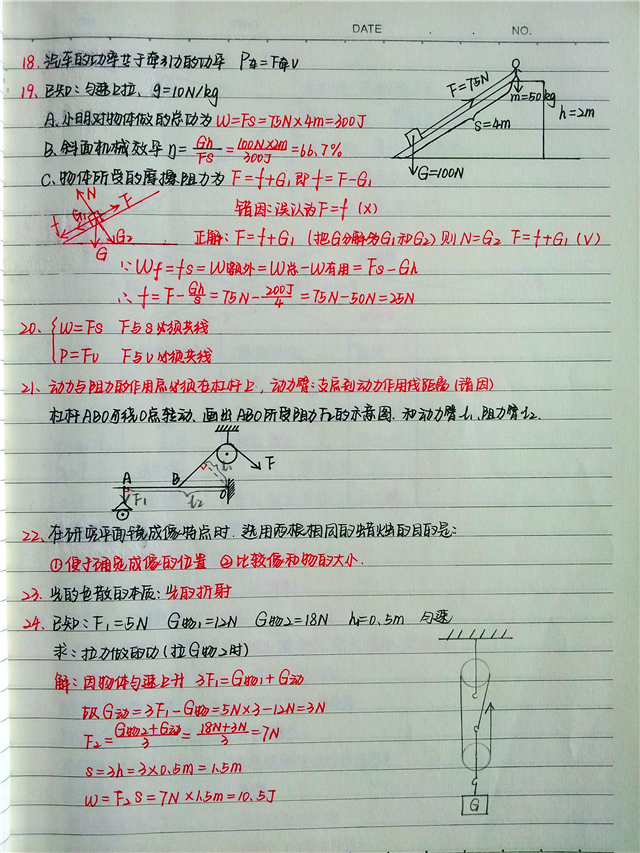 DATE NO.
18. 汽车的功率等于牵引力的功率 P车=F牵v
19. 已知:匀速上拉, g=10N/kg
F=75N
m=50kg
s=4m
h=2m
G=100N
A. 小明对物体做的总功为 W=FS=75N×4m=300J
B. 斜面机械效率η=Gh/FS=100N×2m/300J=66.7%
C. 物体所受的摩擦阻力为 F=f+G₁即f=F-G₁
错因:误认为F=f (×)
N F f G₁ G₂ G
正解:F=f+G₁ (把G分解为G₁和G₂) 则N=G₂ F=f+G₁ (√)
∵ Wf=fs=W额外=W总-W有用=Fs-Gh
∴ f=F-Gh/s=75N-200J/4=75N-50N=25N
20. { W=Fs F与s必须共线
P=Fv F与v必须共线
21. 动力与阻力的作用点必须在杠杆上, 动力臂:支点到动力作用线距离(错因)
杠杆ABO可绕O点转动, 画出ABO所受阻力F₂的示意图, 和动力臂l₁、阻力臂l₂.
A B O F F₁ l₁ l₂
22. 在研究平面镜成像特点时, 选用两根相同的蜡烛的目的是:
①便于确定成像的位置 ②比较像和物的大小.
23. 光的色散的本质:光的折射
24. 已知:F₁=5N G物₁=12N G物2=18N h=0.5m 匀速
求:拉力做的功(拉G物2时)
解:因物体匀速上升 3F₁=G物₁+G动
故G动=3F₁-G物=5N×3-12N=3N
F₂=G物2+G动/3=18N+3N/3=7N
s=3h=3×0.5m=1.5m
W=F₂s=7N×1.5m=10.5J
G